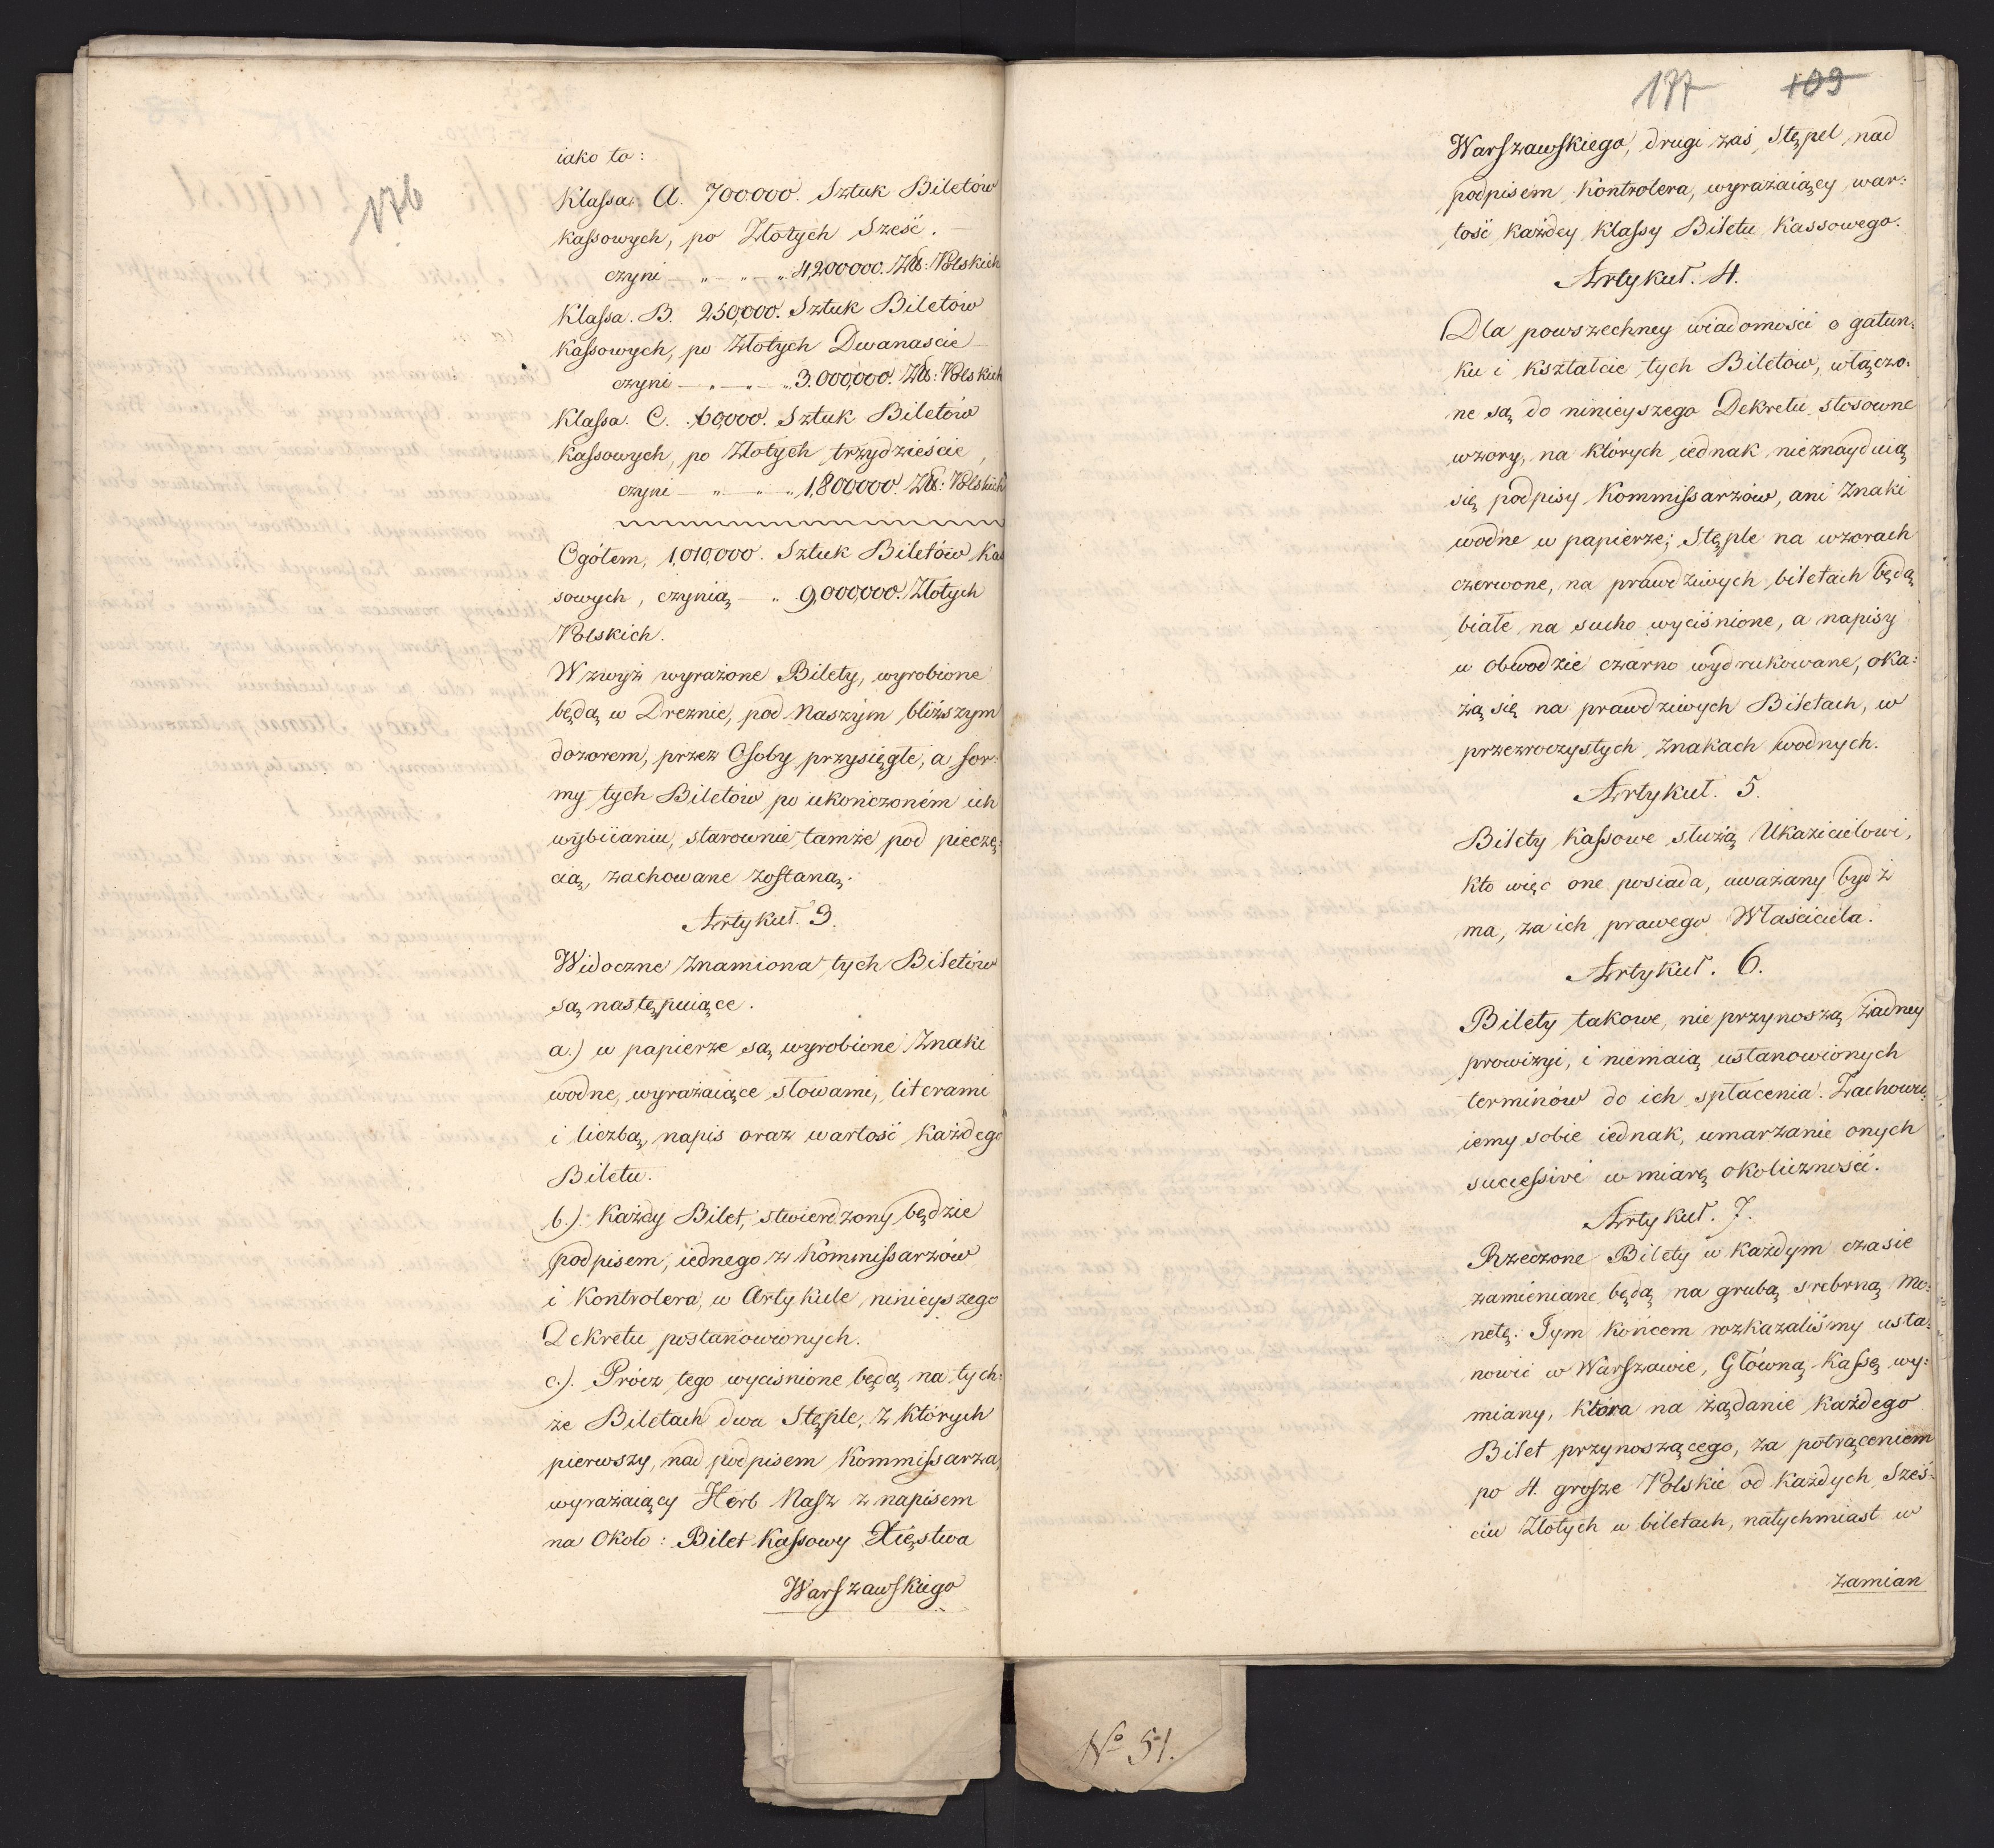 176
iako to:
Klassa. A. 700000. Sztuk Biletów
kassowych, po Złotych Sześć.
czyni — „ — „ — „ 4,200000. Zło: Polskich
Klassa. B. 250,000. Sztuk Biletów
kassowych, po Złotych Dwanaście —
czyni — „ — „ — „ 3.000,000. Zło: Polskich
Klassa. C. 60,000. Sztuk Biletów
kassowych, po Złotych trzydzieście,
czyni — „ — „ — „ 1,800000. Zło: Polskich
Ogółem, 1,010,000. Sztuk Biletów Kas
sowych, czynią — „ 9,000,000. Złotych
Polskich.
Wzwyż wyrażone Bilety, wyrobione
będą w Dreznie, pod Naszym bliższym
dozorem, przez Osoby przysięgłe, a for:
my tych Biletów po ukończoném ich
wybiianiu, starownie tamże pod pieczę:
cią, zachowane zostaną.
Artykuł. 3.
Widoczne znamiona tych Biletów
są następuiące.
a.) w papierze są wyrobione Znaki
wodne, wyrażaiące słowami, literami
i liczbą, napis oraz wartość każdego
Biletu.
b.) Każdy Bilet, stwierdzony będzie
podpisem, iednego z Kommissarzów
i Kontrolera, w Artykule ninieyszego
Dekretu postanowionych.
c.). Prócz tego wyciśnione będą na tych:
że Biletach dwa Stęple, z których
pierwszy, nad podpisem Kommissarza,
wyrażaiący Herb Nasz z napisem
na Około: Bilet Kassowy Xięstwa
Warszawskiego
177 109
Warszawskiego, drugi zaś Stępel nad
podpisem Kontrolera, wyrażaiący war:
tość każdey Klassy Biletu Kassowego.
Artykuł. 4.
Dla powszechney wiadomości o gatun:
ku i kształcie tych Biletów, włączo:
ne są do ninieyszego Dekretu stosowne
wzory, na których iednak nieznayduią
się podpisy Kommissarzów, ani Znaki
wodne w papierze; Stęple na wzorach
czerwone, na prawdziwych biletach będą
białe na sucho wyciśnione, a napisy
w obwodzie czarno wydrukowane, oka:
żą się na prawdziwych Biletach, w
przezroczystych znakach wodnych.
Artykuł. 5.
Bilety Kassowe służą Ukazicielowi,
kto więc one posiada, uważany bydź
ma, za ich prawego Właściciela.
Artykuł. 6.
Bilety takowe, nie przynoszą żadney
prowizyi, i niemaią ustanowionych
terminów do ich spłacenia. Zachowu:
iemy sobie iednak, umarzanie onych
successive w miarę okoliczności.
Artykuł. 7.
Rzeczone Bilety w każdym czasie
zamieniane będą na grubą srebrną mo:
netę: Tym końcem rozkazaliśmy usta:
nowić w Warszawie, Główną Kassę wy:
miany, która na żądanie każdego
Bilet przynoszącego, za potrąceniem
po 4. grosze Polskie od każdych Sześ:
ciu Złotych w biletach, natychmiast w
zamian
No 51.